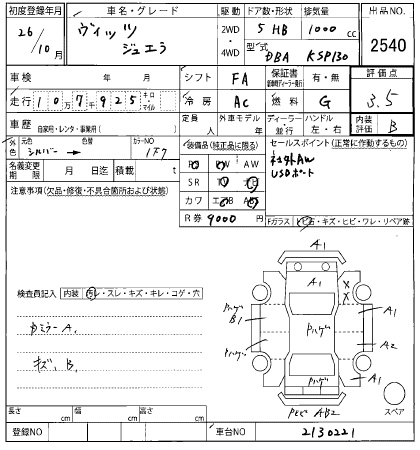 初度登録年月 車名・グレード 駆動 ドア数・形状 排気量 出品NO.
26/10月 ヴィッツ ジュエラ 2WD・4WD 5 HB 1000cc 2540
型式 DBA KSP130
車検 年 月 シフト FA 保証書 有・無 評価点
走行 107千925 キロ・マイル 冷房 AC 燃料 G 3.5
車歴 自家用・レンタ・事業用( ) 定員 人 外車モデル 年 ディーラー 並行 ハンドル 左・右 内装評価 B
外色 元色 シルバー → 色替 カラーNO 1F7 装備品(純正品に限る) セールスポイント(正常に作動するもの)
PS PW AW 社外AW
名義変更期限 月 日迄 積載 t SR TV ナビ USBポート
注意事項(欠品・修復・不具合箇所および状態) カワ エアB ABS
R券 9000円 Fガラス ヒビ石・キズ・ヒビ・ワレ・リペア跡
A1
A1
X
X
検査員記入 内装 汚レ・スレ・キズ・キレ・コゲ・穴
Pハゲ B1 Pハゲ A1
内ミラーA、 Pハゲ A2
キズ、B、 Pハゲ A1
スペア
長さ cm 幅 cm 高さ cm AB2
登録NO 車台NO 2130221